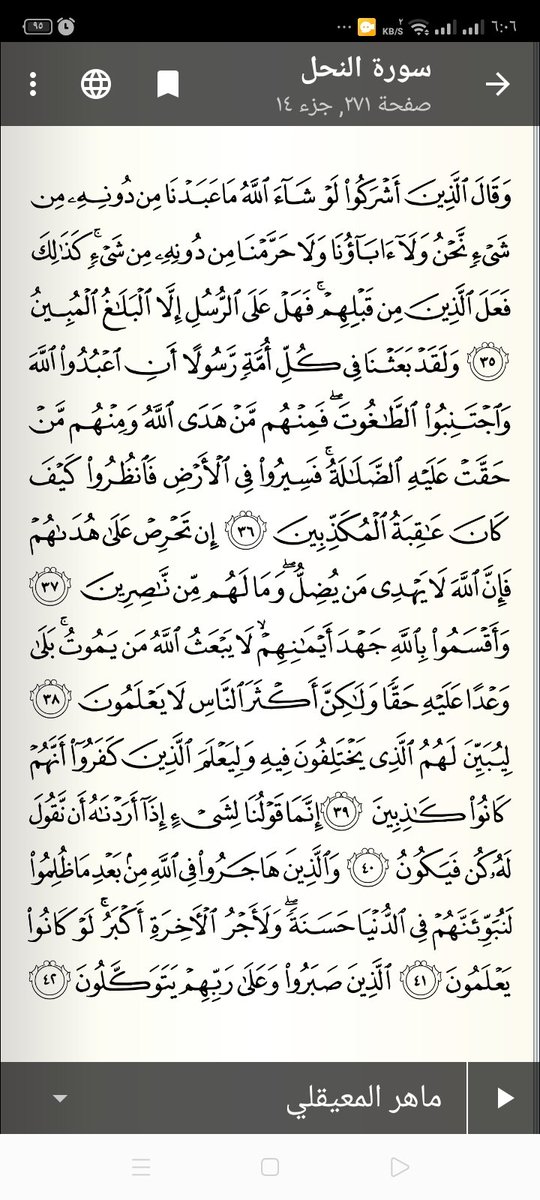 ٩٥ ٢ KB/S ٦:٠٦
سورة النحل
صفحة ٢٧١, جزء ١٤
وَقَالَ ٱلَّذِينَ أَشْرَكُوا۟ لَوْ شَآءَ ٱللَّهُ مَا عَبَدْنَا مِن دُونِهِۦ مِن
شَىْءٍ نَّحْنُ وَلَآ ءَابَآؤُنَا وَلَا حَرَّمْنَا مِن دُونِهِۦ مِن شَىْءٍ ۚ كَذَٰلِكَ
فَعَلَ ٱلَّذِينَ مِن قَبْلِهِمْ ۚ فَهَلْ عَلَى ٱلرُّسُلِ إِلَّا ٱلْبَلَٰغُ ٱلْمُبِينُ
٣٥ وَلَقَدْ بَعَثْنَا فِى كُلِّ أُمَّةٍ رَّسُولًا أَنِ ٱعْبُدُوا۟ ٱللَّهَ
وَٱجْتَنِبُوا۟ ٱلطَّٰغُوتَ ۖ فَمِنْهُم مَّنْ هَدَى ٱللَّهُ وَمِنْهُم مَّنْ
حَقَّتْ عَلَيْهِ ٱلضَّلَٰلَةُ ۚ فَسِيرُوا۟ فِى ٱلْأَرْضِ فَٱنظُرُوا۟ كَيْفَ
كَانَ عَٰقِبَةُ ٱلْمُكَذِّبِينَ ٣٦ إِن تَحْرِصْ عَلَىٰ هُدَىٰهُمْ
فَإِنَّ ٱللَّهَ لَا يَهْدِى مَن يُضِلُّ ۖ وَمَا لَهُم مِّن نَّٰصِرِينَ ٣٧
وَأَقْسَمُوا۟ بِٱللَّهِ جَهْدَ أَيْمَٰنِهِمْ ۙ لَا يَبْعَثُ ٱللَّهُ مَن يَمُوتُ ۚ بَلَىٰ
وَعْدًا عَلَيْهِ حَقًّا وَلَٰكِنَّ أَكْثَرَ ٱلنَّاسِ لَا يَعْلَمُونَ ٣٨
لِيُبَيِّنَ لَهُمُ ٱلَّذِى يَخْتَلِفُونَ فِيهِ وَلِيَعْلَمَ ٱلَّذِينَ كَفَرُوٓا۟ أَنَّهُمْ
كَانُوا۟ كَٰذِبِينَ ٣٩ إِنَّمَا قَوْلُنَا لِشَىْءٍ إِذَآ أَرَدْنَٰهُ أَن نَّقُولَ
لَهُۥ كُن فَيَكُونُ ٤٠ وَٱلَّذِينَ هَاجَرُوا۟ فِى ٱللَّهِ مِنۢ بَعْدِ مَا ظُلِمُوا۟
لَنُبَوِّئَنَّهُمْ فِى ٱلدُّنْيَا حَسَنَةً ۖ وَلَأَجْرُ ٱلْـَٔاخِرَةِ أَكْبَرُ ۚ لَوْ كَانُوا۟
يَعْلَمُونَ ٤١ ٱلَّذِينَ صَبَرُوا۟ وَعَلَىٰ رَبِّهِمْ يَتَوَكَّلُونَ ٤٢
ماهر المعيقلي